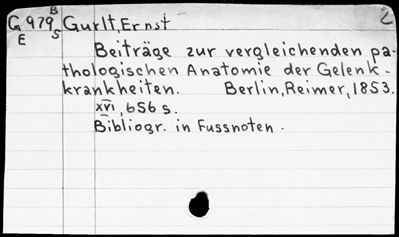 B 2
G 979 Gurlt, Ernst
E S
Beiträge zur vergleichenden pa-
thologischen Anatomie der Gelenk-
krankheiten. Berlin, Reimer, 1853.
XVI, 656 s.
Bibliogr. in Fussnoten.